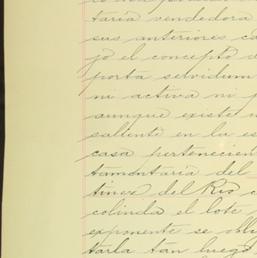 taria vendedora
sus anteriores ca
jo el concepto d
porta servidum
ni activa ni p
aunque existe u
saliente en la es
casa pertenecien
tamentaria del
tinez del Rio c
colinda el lote
exponente se obli
tarla tan luego